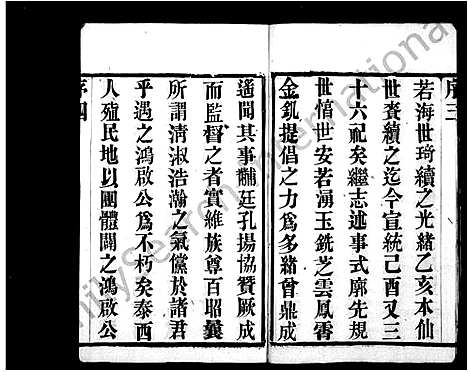 序三
若海世琦續之光緒乙亥本仙
世賚續之迄今宣統己酉又三
十六祀矣繼志述事式廓先規
世愔世安若湧玉銑芝雲鳳香
金釚提倡之力爲多緒曾鼎成
遥聞其事黼廷孔揚協贊厥成
而監督之者實維族尊百昭曩
所謂清淑浩瀚之氣儻於諸君
乎遇之鴻啟公爲不朽矣泰西
人殖民地以團體鬪之鴻啟公
序四
FamilySearch International